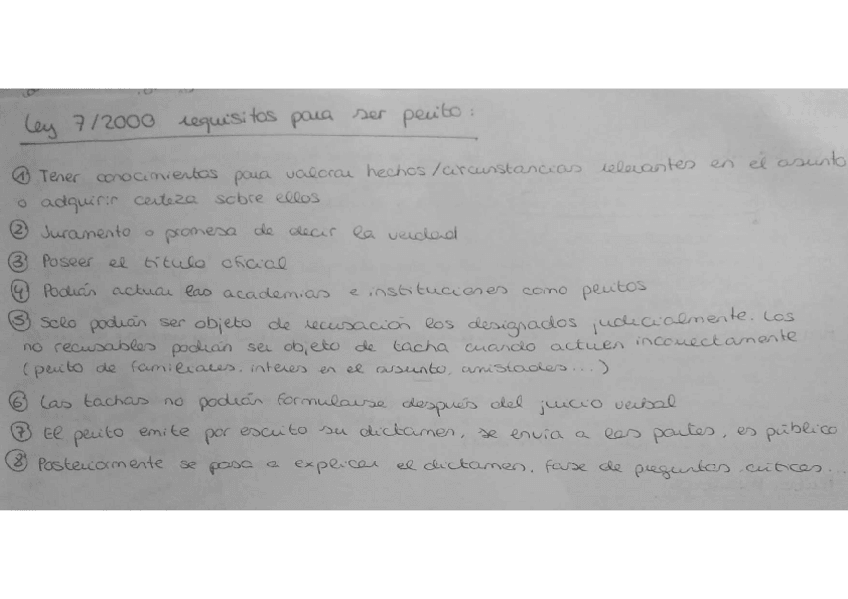 Ley 7/2000 requisitos para ser perito:
① Tener conocimientos para valorar hechos/circunstancias relevantes en el asunto
o adquirir certeza sobre ellos
② Juramento o promesa de decir la verdad
③ Poseer el título oficial
④ Podrán actuar las academias e instituciones como peritos
⑤ Solo podrán ser objeto de recusación los designados judicialmente. Los
no recusables podrán ser objeto de tacha cuando actúen incorrectamente
(perito de familiares, interes en el asunto, amistades...)
⑥ Las tachas no podrán formularse después del juicio verbal
⑦ El perito emite por escrito su dictamen, se envia a las partes, es público
⑧ Posteriormente se pasa a explicar el dictamen, fase de preguntas, criticas...